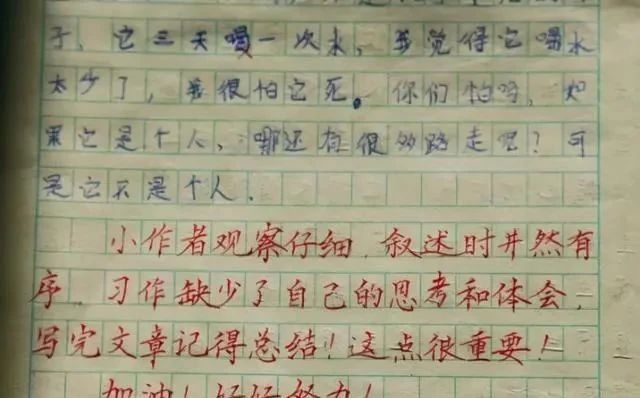 子，它三天喝一次水，我觉得它喝水
太少了，我很怕它死。你们怕吗，如
果它是个人，哪还有很多路走呢？可
是它不是个人．
小作者观察仔细，叙述时井然有
序．习作缺少了自己的思考和体会，
写完文章记得总结！这点很重要！
加油！好好努力！